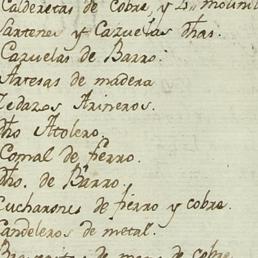 Calderetas de Cobre, y
Sartenes y Cazuelas dhas.
Cazuelas de Barro.
Artesas de madera
Zedazos Arineros.
Dho Atolero.
Comal de fierro.
Dho. de Barro.
Cucharones de fierro y cobre.
Candeleros de metal.
de mano de cobre